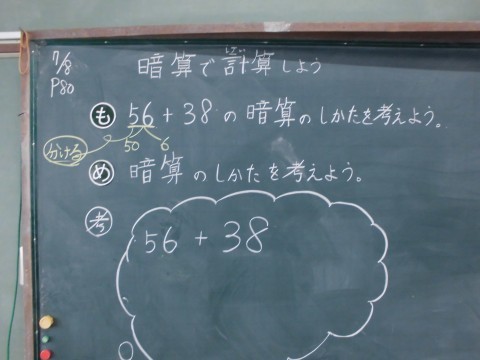 7/8
P80
暗算で計算しよう
けい
も 56+38の暗算のしかたを考えよう。
分ける 50 6
め 暗算のしかたを考えよう。
考
56+38